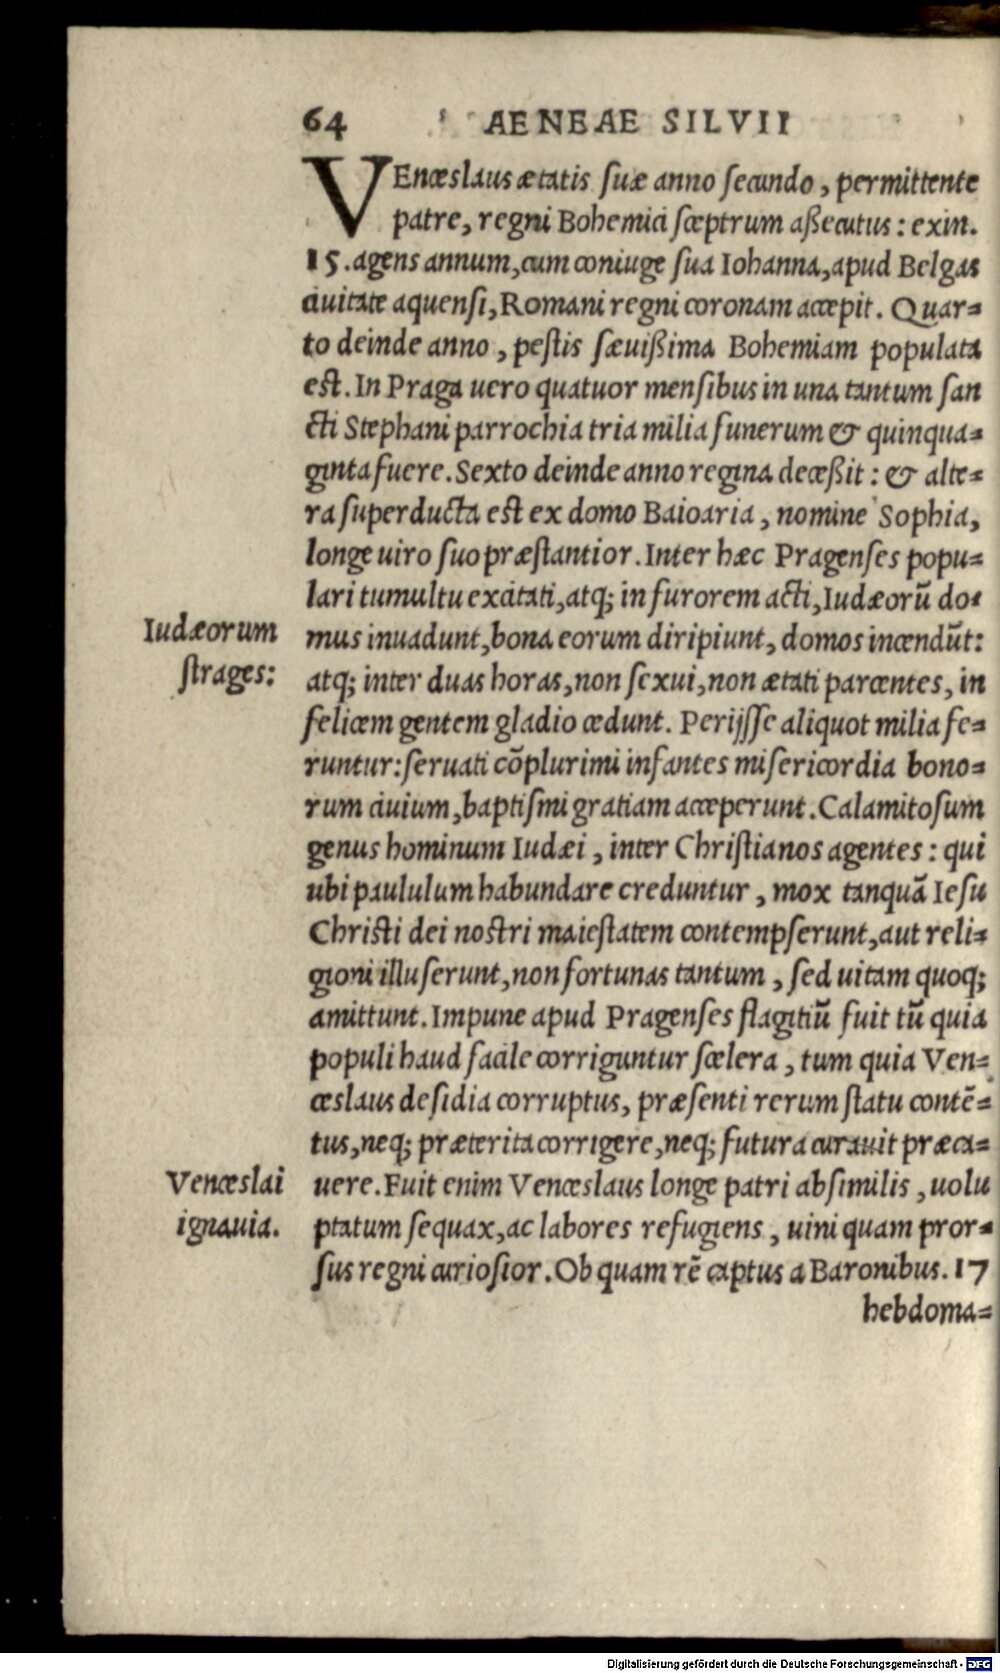 64 AENEAE SILVII
VEnceslaus ætatis suæ anno secundo, permittente
patre, regni Bohemici sceptrum aßecutus: exin.
15. agens annum, cum coniuge sua Iohanna, apud Belgas
ciuitate aquensi, Romani regni coronam accepit. Quar=
to deinde anno, pestis sæuißima Bohemiam populata
est. In Praga uero quatuor mensibus in una tantum san
cti Stephani parrochia tria milia funerum & quinqua=
ginta fuere. Sexto deinde anno regina deceßit: & alte=
ra superducta est ex domo Baioaria, nomine Sophia,
longe uiro suo præstantior. Inter hæc Pragenses popu=
lari tumultu excitati, atq; in furorem acti, Iudæorũ do=
Iudæorum
strages:
mus inuadunt, bona eorum diripiunt, domos incendũt:
atq; inter duas horas, non sexui, non ætati parcentes, in
felicem gentem gladio cedunt. Perijsse aliquot milia fe=
runtur: seruati cõplurimi infantes misericordia bono=
rum ciuium, baptismi gratiam acceperunt. Calamitosum
genus hominum Iudæi, inter Christianos agentes: qui
ubi paululum habundare creduntur, mox tanquã Iesu
Christi dei nostri maiestatem contempserunt, aut reli=
gioni illuserunt, non fortunas tantum, sed uitam quoq;
amittunt. Impune apud Pragenses flagitiũ fuit tũ quia
populi haud facile corriguntur scelera, tum quia Ven=
ceslaus desidia corruptus, præsenti rerum statu contẽ=
tus, neq; præterita corrigere, neq; futura curauit præca=
Venceslai
ignauia.
uere. Fuit enim Venceslaus longe patri absimilis, uolu
ptatum sequax, ac labores refugiens, uini quam pror=
sus regni curiosior. Ob quam rẽ captus a Baronibus. 17
hebdoma=
Digitalisierung gefördert durch die Deutsche Forschungsgemeinschaft - DFG